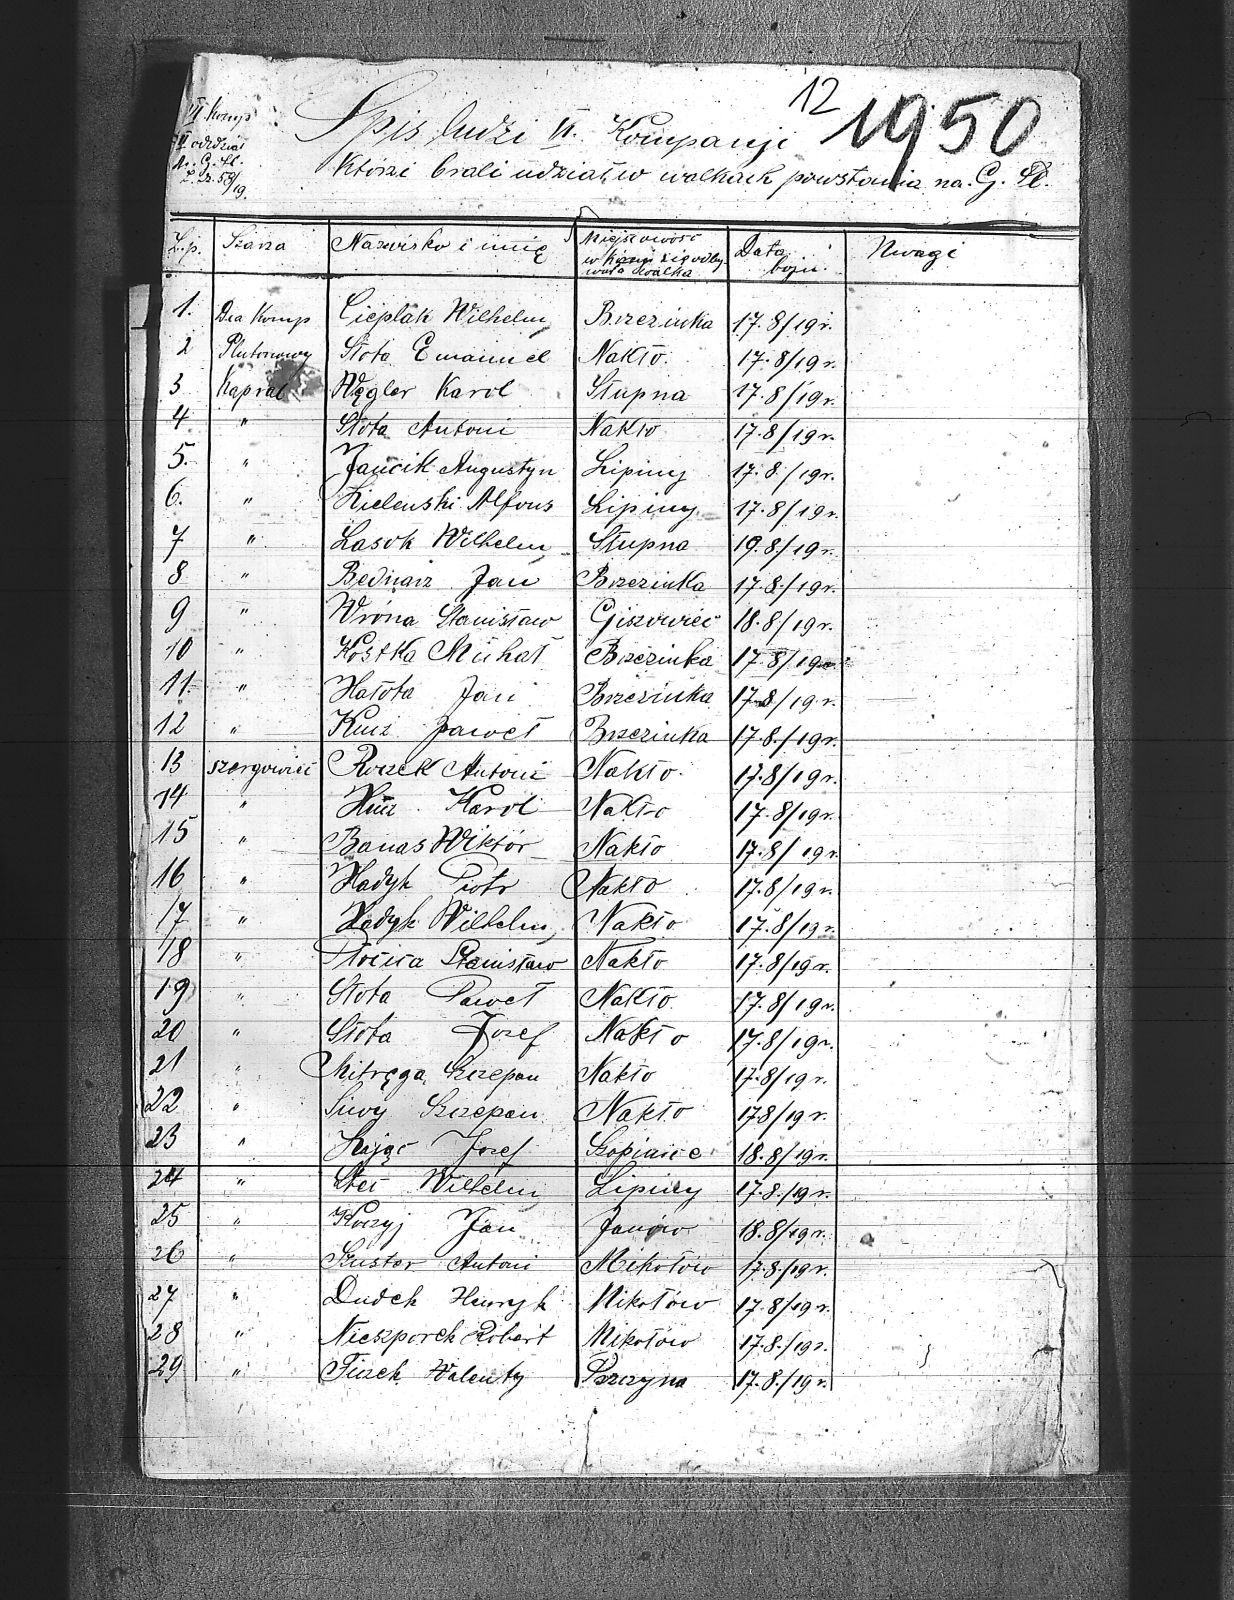 VI Komp
II oddział
N. G. Śl.
L. dz. 59/19.
12
1950
Spis ludzi VI. Kompanji
którzi brali udział w walkach powstania na. G. Śl.
L.p. Szarza Nazwisko i imię Miejscowość w kturej się odbywała walka Data boju Uwagi
1. D-ca Komp Cieplak Wilhelm Brzezinka 17.8/19 r.
2 Plutonowy Słota Emanuel Nakło. 17.8/19 r.
3 Kapral Węgler Karol Słupna 17.8/19 r.
4 " Słota Antoni Nakło 17.8/19 r.
5. " Jancik Augustyn Lipiny 17.8./19 r.
6. " Zielenski Alfons Lipiny 17.8/19 r.
7 " Lasok Wilhelm Słupna 19.8/19 r.
8 " Bednarz Jan Brzezinka 17.8./19 r.
9 " Wróna Stanisław Giszowiec 18.8/19 r.
10 " Kostka Michał Brzezinka 17.8/19 r.
11. " Hałota Jan Brzezinka 17.8/19 r.
12 " Kurz Paweł Brzezinka 17.8./19 r.
13 szergowiec Roczek Antoni Nakło. 17.8/19 r.
14 " Karol Nakło 17.8/19 r.
15 " Banas Wiktór Nakło 17.8/19 r.
16 " Hadyk Piotr Nakło 17.8/19 r.
17 " Hadyk Wilhelm Nakło 17.8/19 r.
18 " Stanisław Nakło 17.8/19 r.
19 " Słota Paweł Nakło 17.8/19 r.
20 " Słota Jozef Nakło 17.8/19 r.
21 " Mitręga Szczepan Nakło 17.8/19 r.
22 " Siwy Szczepan Nakło 17.8/19 r.
23 " Zając Jozef Szopinice 18.8/19 r.
24 " Wilhelm Lipiny 17.8./19 r.
25 " Koczyj Jan Janów 18.8/19 r.
26 " Szuster Antoni Mikołów 17.8./19 r.
27 " Dudek Henryk Mikołów 17.8/19 r.
28 " Nieszporek Robert Mikołów 17.8./19 r.
29 " Walenty Pszczyna 17.8./19 r.